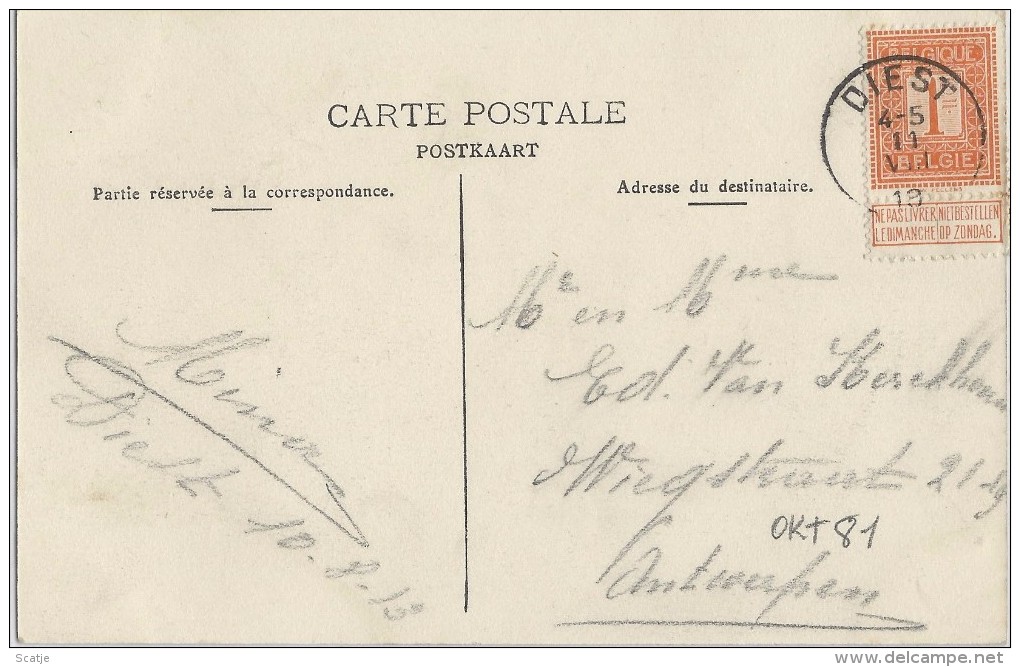 CARTE POSTALE
POSTKAART
Partie réservée à la correspondance.
Adresse du destinataire.
BELGIQUE
1
BELGIË
NE PAS LIVRER LE DIMANCHE
NIET BESTELLEN OP ZONDAG.
DIEST
4-5
11
VIII
Mina
Diest 10-8-13
Mr en Mme
Ed. Van
Wiegstraat 21
OKT 81
Antwerpen
Scatje
www.delcampe.net